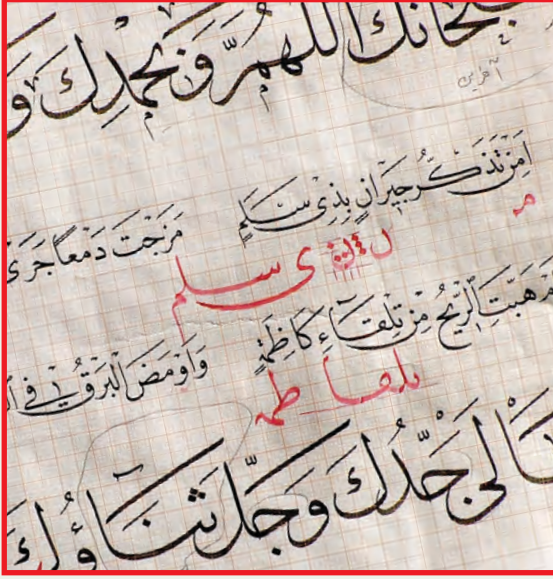 سبحانك اللهم وبحمدك و
أَمِنْ تَذَكُّرِ جِيرَانٍ بِذِي سَلَمِ
مَزَجْتَ دَمْعًا جَرَى
ى سلم
هَبَّتِ الرِّيحُ مِنْ تِلْقَاءِ كَاظِمَةٍ
وَأَوْمَضَ الْبَرْقُ فِي
تلقا ظمة
تَعَالَى جَدُّكَ وَجَلَّ ثَنَاؤُكَ